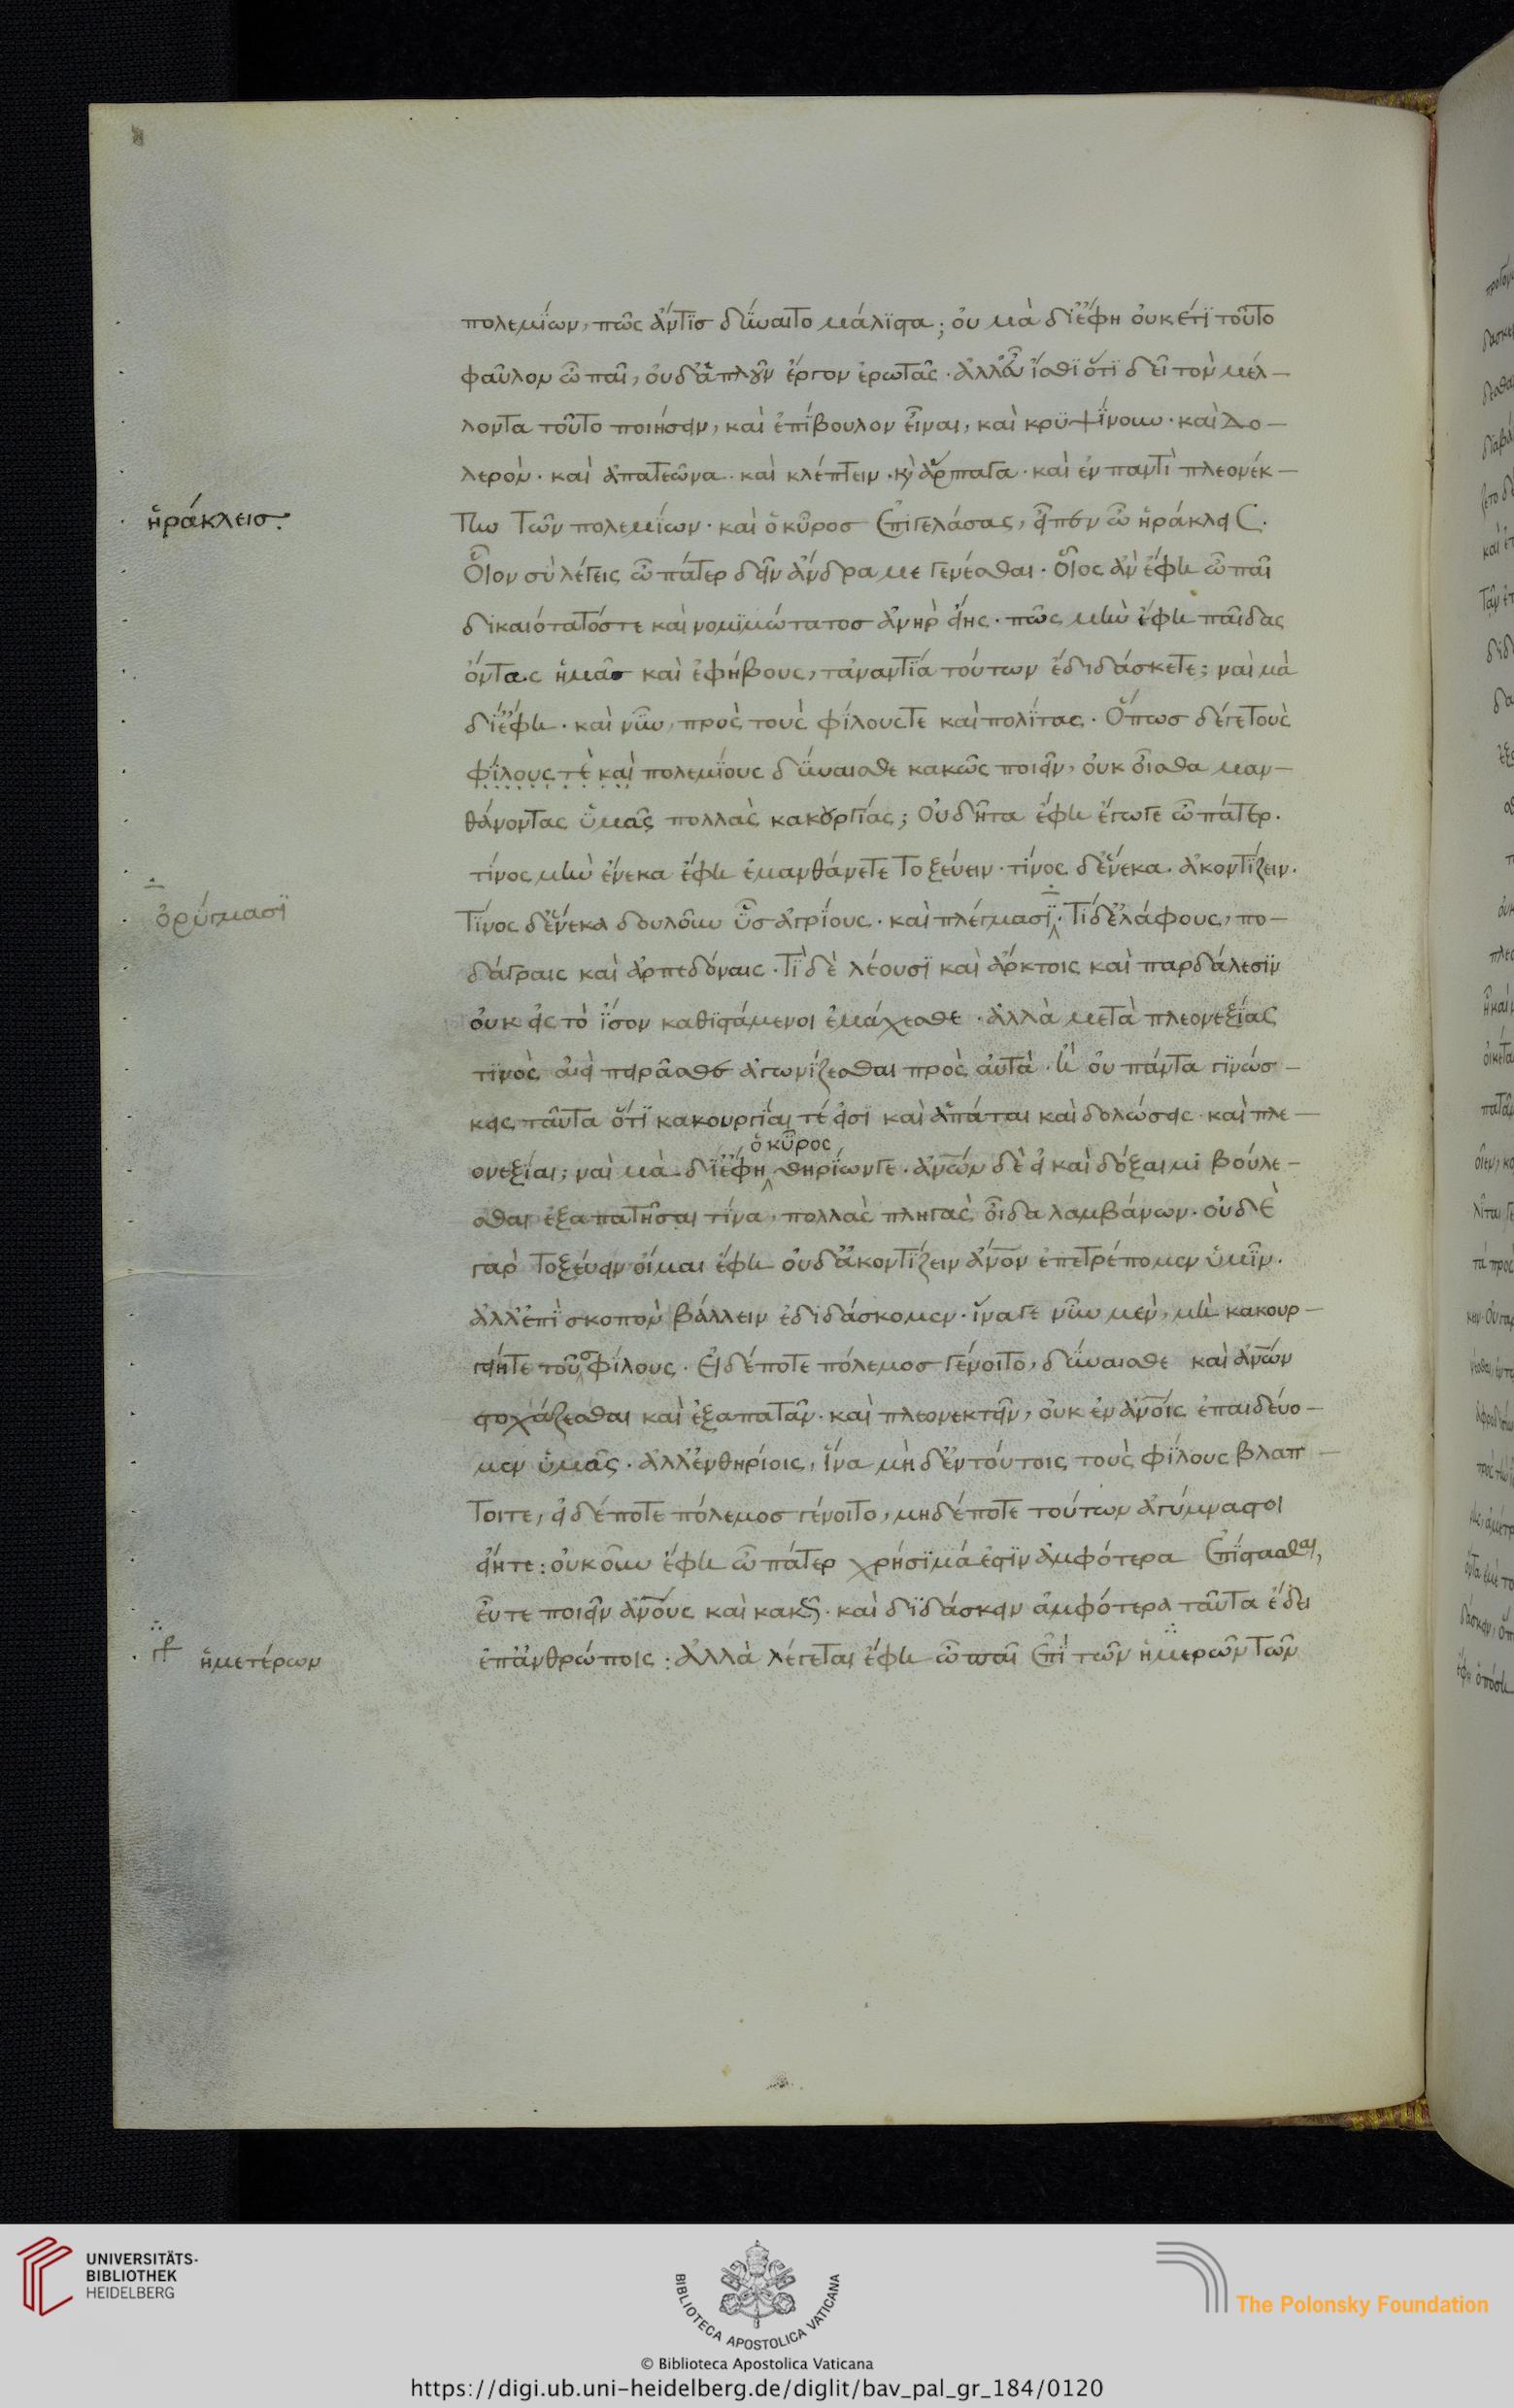 πολεμίων, πῶς ἄντϊσ δύναιτο μάλϊστα; οὐ μὰ δί' ἔφη οὐκέτϊ τοῦτο
φαῦλον ὦ παῖ, οὐδ' ἁπλοῦν ἔργον ἐρωτᾶς. ἀλλ' εὖ ἴσθϊ ὅτϊ δεῖ τὸν μέλ-
λοντα τοῦτο ποιήσειν, καὶ ἐπίβουλον εἶναι, καὶ κρυψίνουν. καὶ δο-
λερὸν. καὶ ἀπατεῶνα. καὶ κλέπτειν. κὶ ἅρπαγα. καὶ ἐν παντὶ πλεονέκ-
ἡράκλεισ.
την τῶν πολεμίων. καὶ ὁ κῦροσ ἐπιγελάσας, εἶπεν ὦ ἡράκλεις.
Οἷον σὺ λέγεις ὦ πάτερ δεῖν ἄνδρα με γενέσθαι. οἷος ἂν ἔφη ὦ παῖ
δικαιότατόστε καὶ νομϊμώτατοσ ἀνὴρ εἴης. πῶς μὴν ἔφη παῖδας
ὄντας ἡμᾶσ καὶ ἐφήβους, τἀναντϊά τούτων ἐδιδάσκετε; ναὶ μὰ
δί' ἔφη. καὶ νῦν, πρὸς τοὺς φίλουςτε καὶ πολίτας. Ὅπωσ δέγε τοὺς
φίλους τὲ καὶ πολεμίους δύναισθε κακῶς ποιεῖν, οὐκ οἶσθα μαν-
θάνοντας ὑμᾶς πολλὰς κακουργίας; Οὐ δῆτα ἔφη ἔγωγε ὦ πάτερ.
τίνος μὴν ἕνεκα ἔφη ἐμανθάνετε τοξεύειν. τίνος δ' ἕνεκα. ἀκοντίζειν.
ὀρύγμασϊ
Τίνος δ' ἕνεκα δουλοῦν ὗσ ἀγρίους. καὶ πλέγμασϊ. Τί δ' ἐλάφους, πο-
δάγραις καὶ ἁρπεδόναις. τί δὲ λέουσϊ καὶ ἄρκτοις καὶ παρδάλεσϊν
οὐκ εἰς τὸ ἴσον καθϊστάμενοι ἐμάχεσθε. ἀλλὰ μετὰ πλεονεξίας
τϊνὸς αἰεὶ πειρᾶσθε ἀγωνίζεσθαι πρὸς αὐτά. ἢ οὐ πάντα γϊνώσ-
κεις ταῦτα ὅτϊ κακουργίαι τέ εἰσϊ καὶ ἀπάται καὶ δολώσεις. καὶ πλε-
ὁ κῦρος
ονεξίαι; ναὶ μὰ δί' ἔφη θηρίωνγε. ἀνων δὲ εἰ καὶ δόξαιμι βούλε-
σθαι ἐξαπατῆσαι τίνα, πολλὰς πληγὰς οἶδα λαμβάνων. οὐδὲ
γὰρ τοξεύειν οἶμαι ἔφη οὐδ' ἀκοντίζειν ἄνον ἐπετρέπομεν ὑμῖν.
ἀλλ' ἐπϊ σκοπὸν βάλλειν ἐδιδάσκομεν. ἵναγε νῦν μὲν, μὴ κακουρ-
γείητε τοὺς φίλους. Εἰ δέποτε πόλεμοσ γένοιτο, δύναισθε καὶ ἀνων
στοχάζεσθαι καὶ ἐξαπατᾶν. καὶ πλεονεκτεῖν, οὐκ ἐν ἀνοις ἐπαιδεύο-
μεν ὑμᾶς. ἀλλ' ἐν θηρίοις, ἵνα μὴ δ' ἐν τούτοις τοὺς φίλους βλαπ-
τοιτε, εἰ δέποτε πόλεμοσ γένοιτο, μηδέποτε τούτων ἀγύμναστοι
εἴητε: οὐκοῦν ἔφη ὦ πάτερ χρήσϊμά ἐστϊν ἀμφότερα ἐπίστασθαι,
εὖ τε ποιεῖν ἀνους καὶ κακῶς. καὶ διδάσκειν ἀμφότερα ταῦτα ἔδει
ἡμετέρων
ἐπ' ἀνθρώποις: ἀλλὰ λέγεται ἔφη ὦ παῖ ἐπὶ τῶν ἡμερῶν τῶν
UNIVERSITÄTS-
BIBLIOTHEK
HEIDELBERG
BIBLIOTECA APOSTOLICA VATICANA
The Polonsky Foundation
© Biblioteca Apostolica Vaticana
https://digi.ub.uni-heidelberg.de/diglit/bav_pal_gr_184/0120